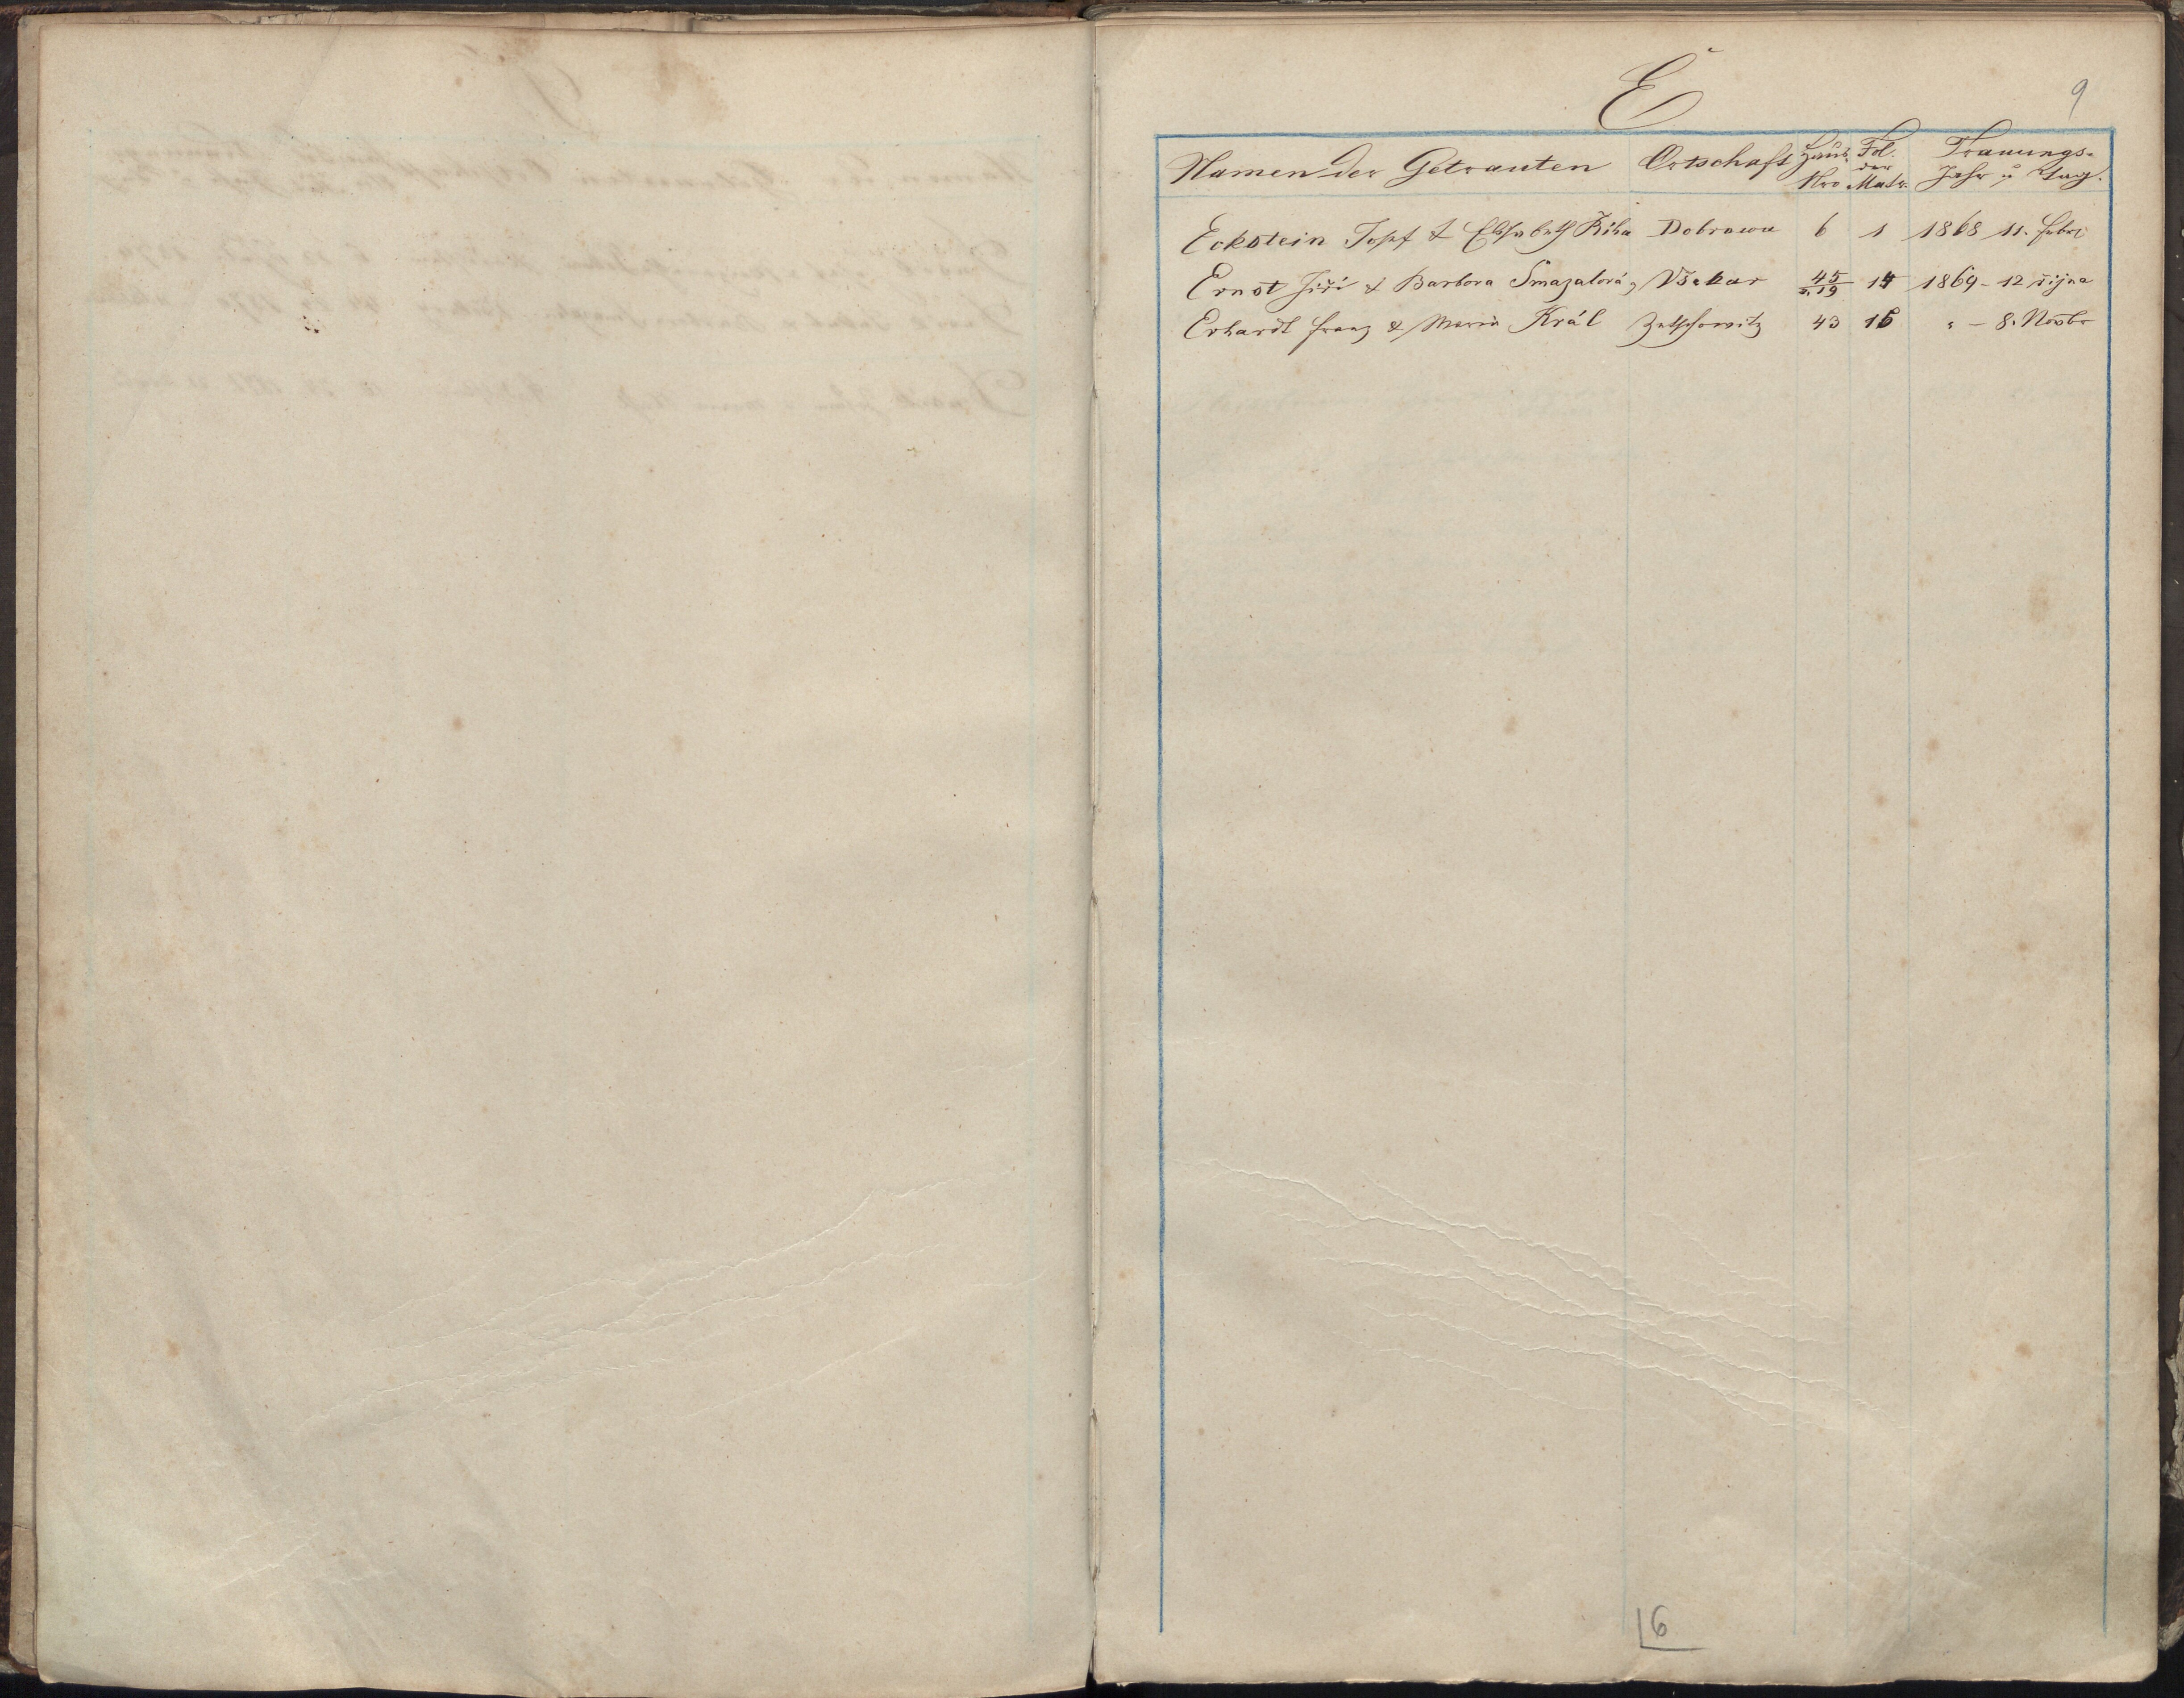 E
9
Namen der Getrauten Ortschaft Haus Nro Fol. der Matr. Trauungs- Jahr u Tag.
Eckstein Josef & Elisabeth Řiha Dobrawa 6 1 1868 11. Febr
Ernst Jiří & Barbora Smazalová, Všekar 45 19 14 1869 - 12 října
Erhardt Franz & Maria Král Zetschowitz 43 16 " - 8. Novbr
16